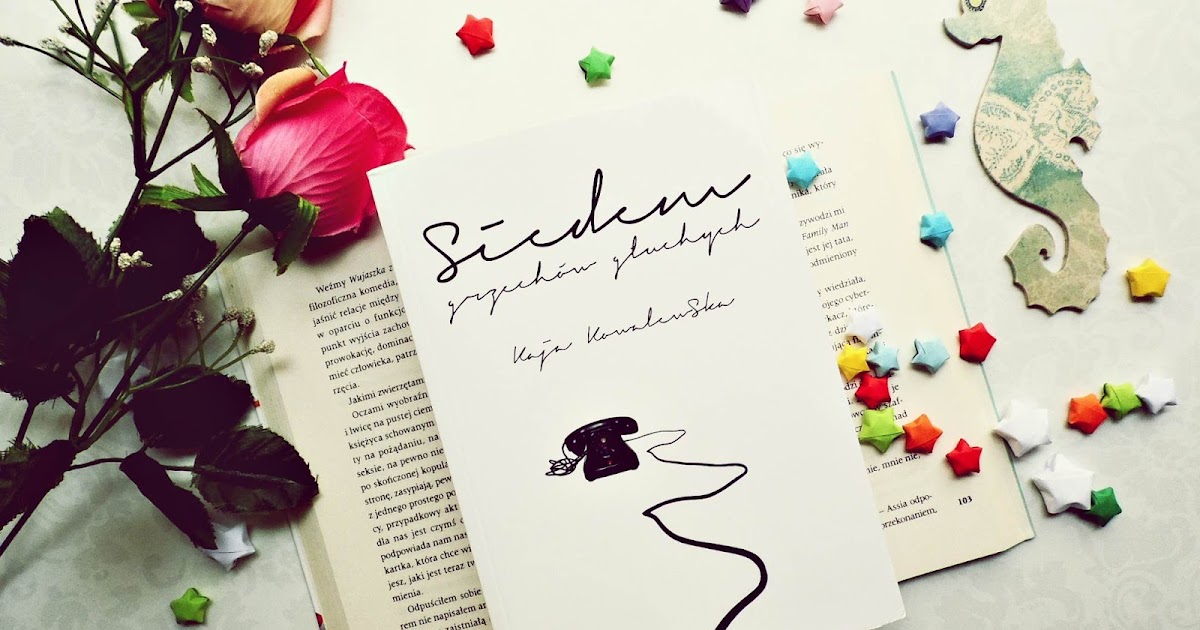 Siedem
grzechów głuchych
Kaja Kowalewska
Weźmy Wujaszka z
filozoficzna komedia
jaśnić relacje między
w oparciu o funkcjo
punkt wyjścia zachow
prowokację, dominac
mieć człowieka, patrz
rzęcia.
Jakimi zwierzętam
Oczami wyobraźn
i lwicę na pustej ciem
księżyca schowanym
ty na pożądaniu, na
seksie, na pewno nie
po skończonej kopula
stronę, zasypiają, pew
z jednego prostego po
cy, przypadkowy akt
dla nas jest czymś c
podpowiada nam nas
kartka, która chce wi
jesz, jaki jest teraz tw
mienia.
Odpuściłem sobie
rem nie napisałem ar
co się wy-
nika, który
zywodzi mi
Family Man
jest jej tata,
odmieniony
wiedziała,
ojego cyber-
kacz, które-
je
nad
mnie, nie,
– Assia odpo-
przekonaniem,
103